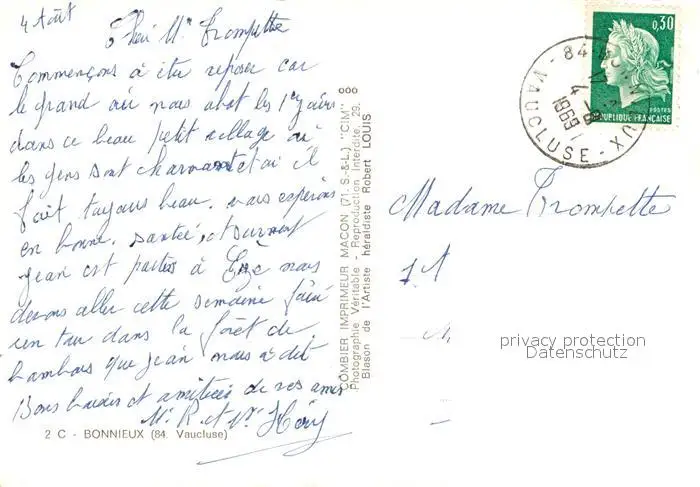 4 Août
Mr Trompette
Commençons à être reposer car
le grand air nous abat les 1er jours
dans ce beau petit village où
les gens sont charmant et où il
fait toujours beau, vous espérons
en bonne santée, et surment
Jean est parties à nous
devons aller cette semaine faire
un tau dans la forêt de
bambous que Jean nous a dit
Bons baisers et amitiées de vos amis
Mr R. et Mme
2 C - BONNIEUX (84. Vaucluse)
COMBIER IMPRIMEUR MACON (71.-S.-&-L.) "CIM"
Photographie Véritable - Reproduction Interdite. 29.
Blason de l'Artiste héraldiste Robert LOUIS
0,30
POSTES
REPUBLIQUE FRANÇAISE
84 BONNIEUX
VAUCLUSE
1969
Madame Trompette
privacy protection
Datenschutz